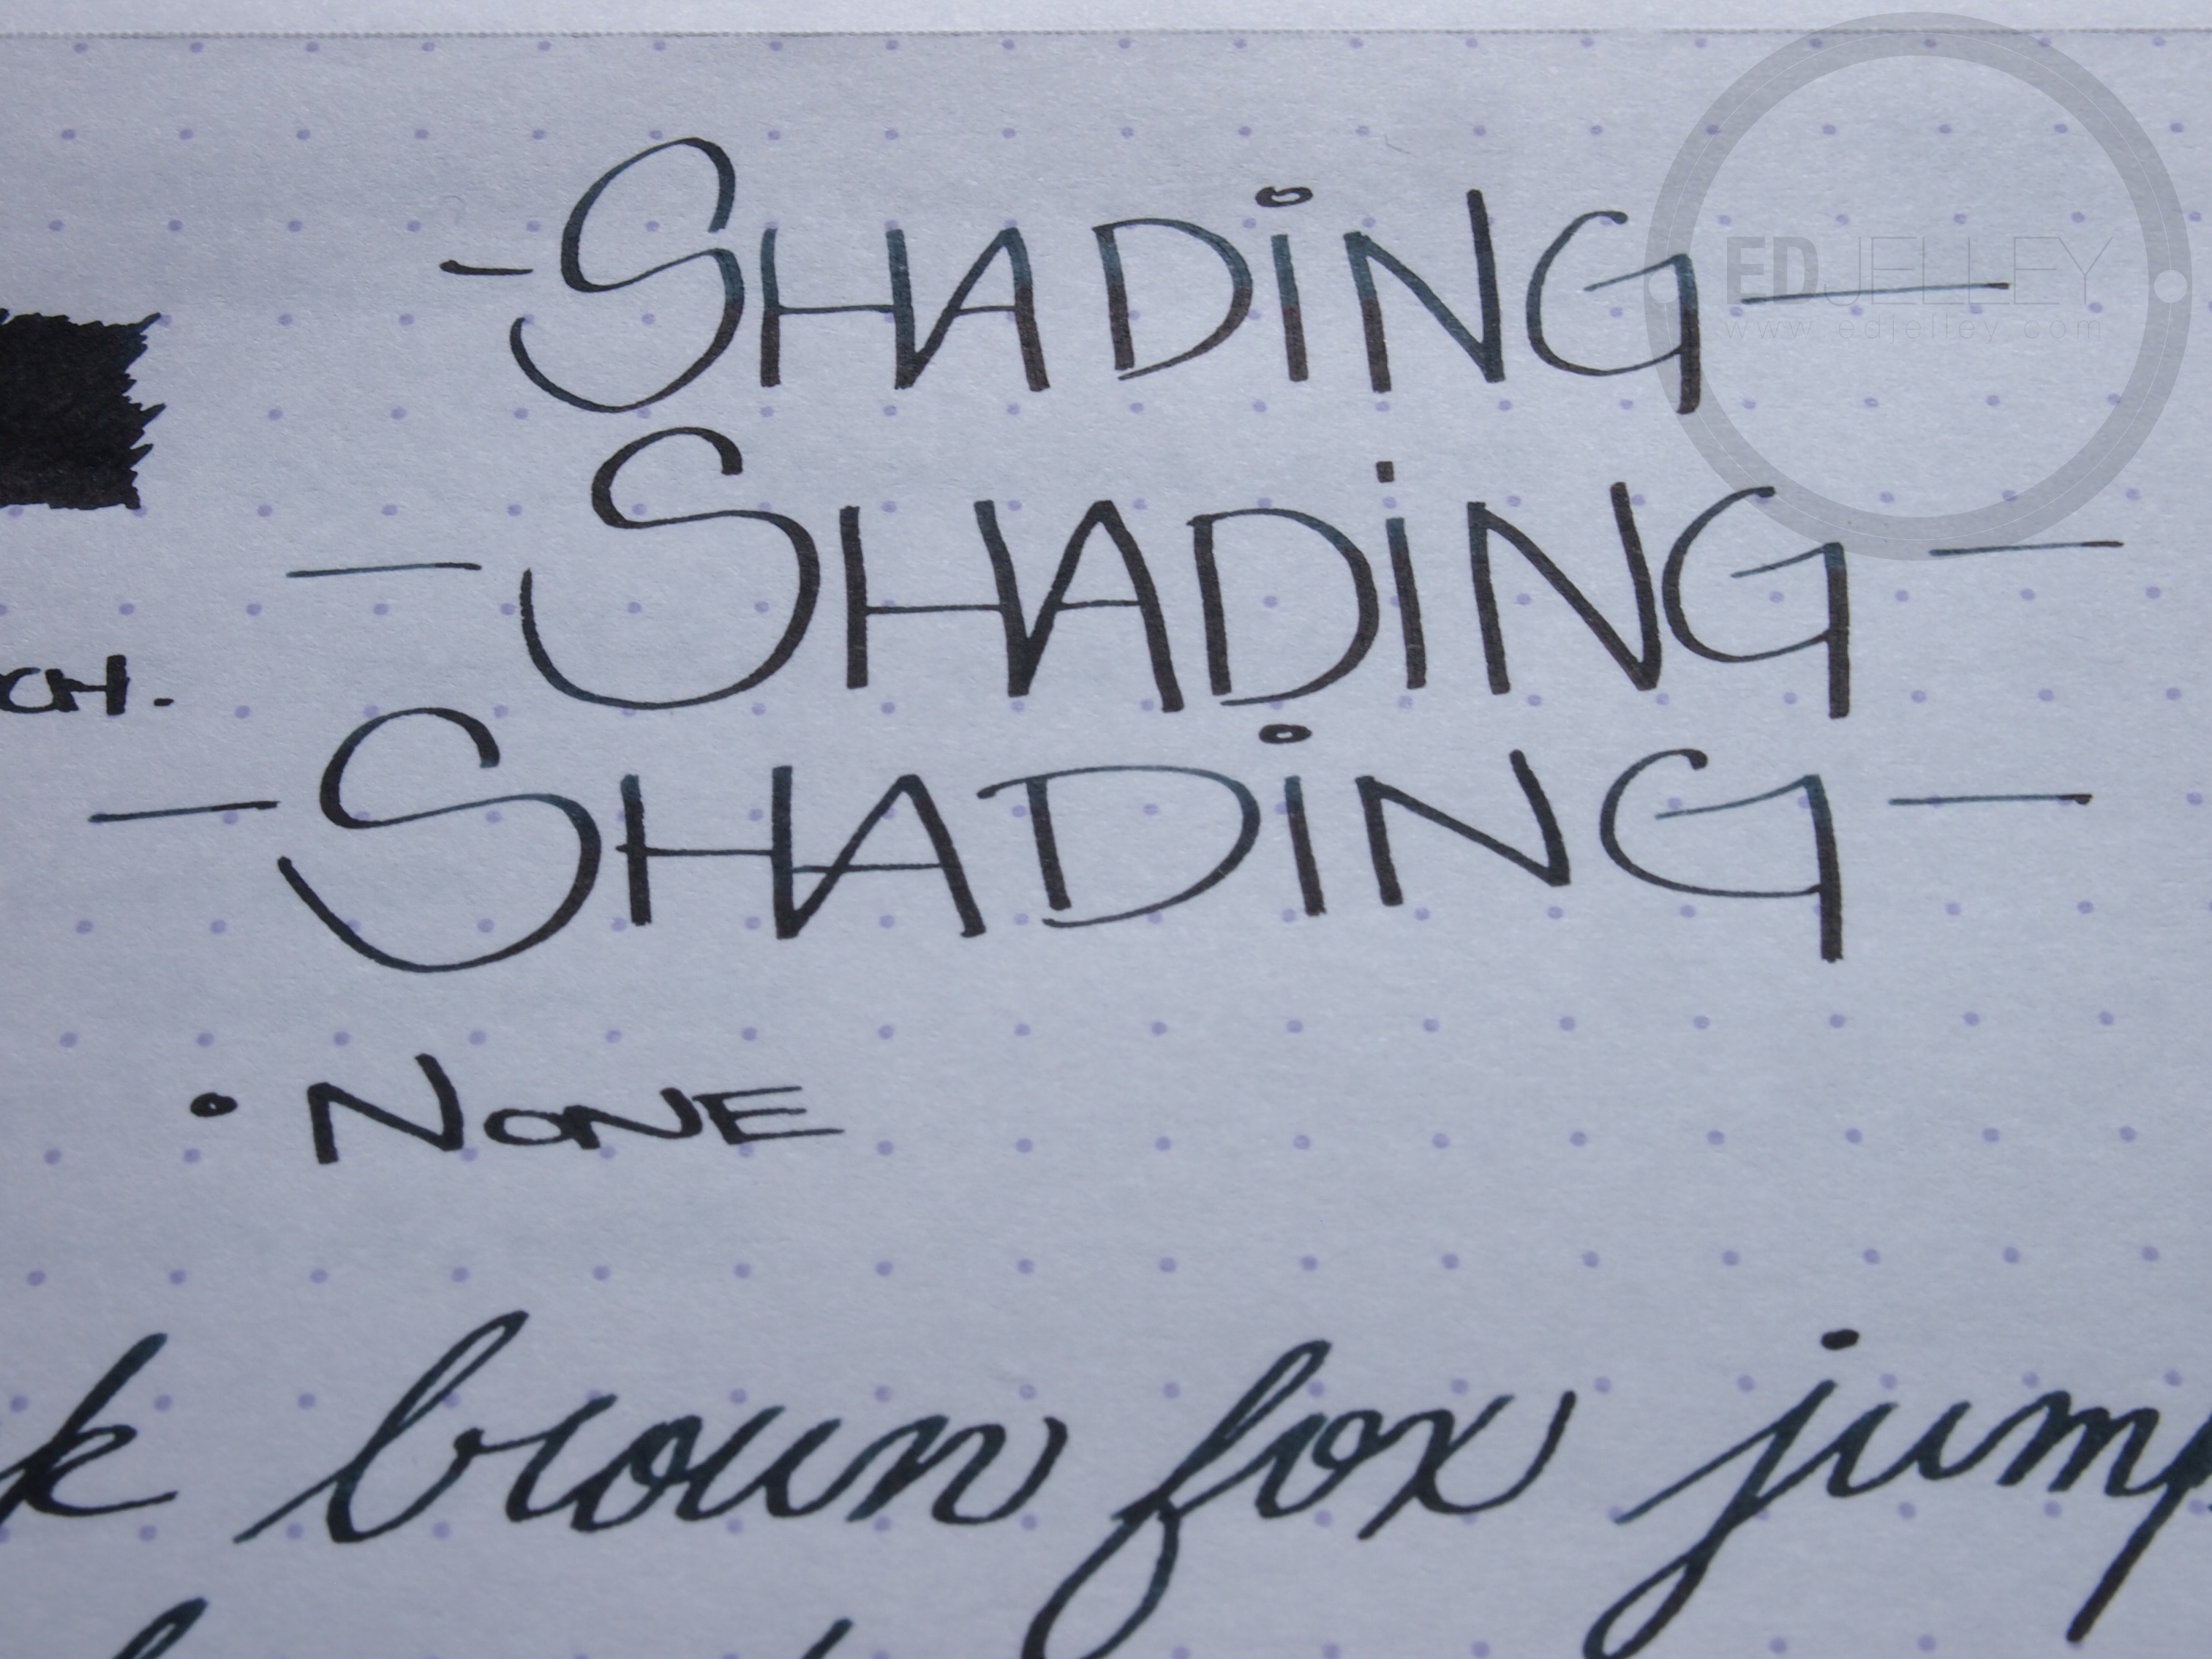 -SHADiNG-
EDJELLEY
www.edjelley.com
-SHADiNG-
CH.
-SHADiNG-
• NONE
k brown fox jump